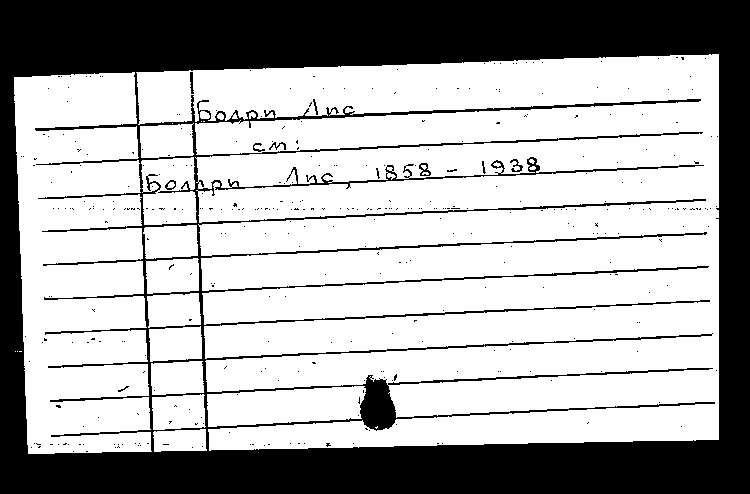 Бодри Лис
см:
Бодри Лис, 1858 - 1938